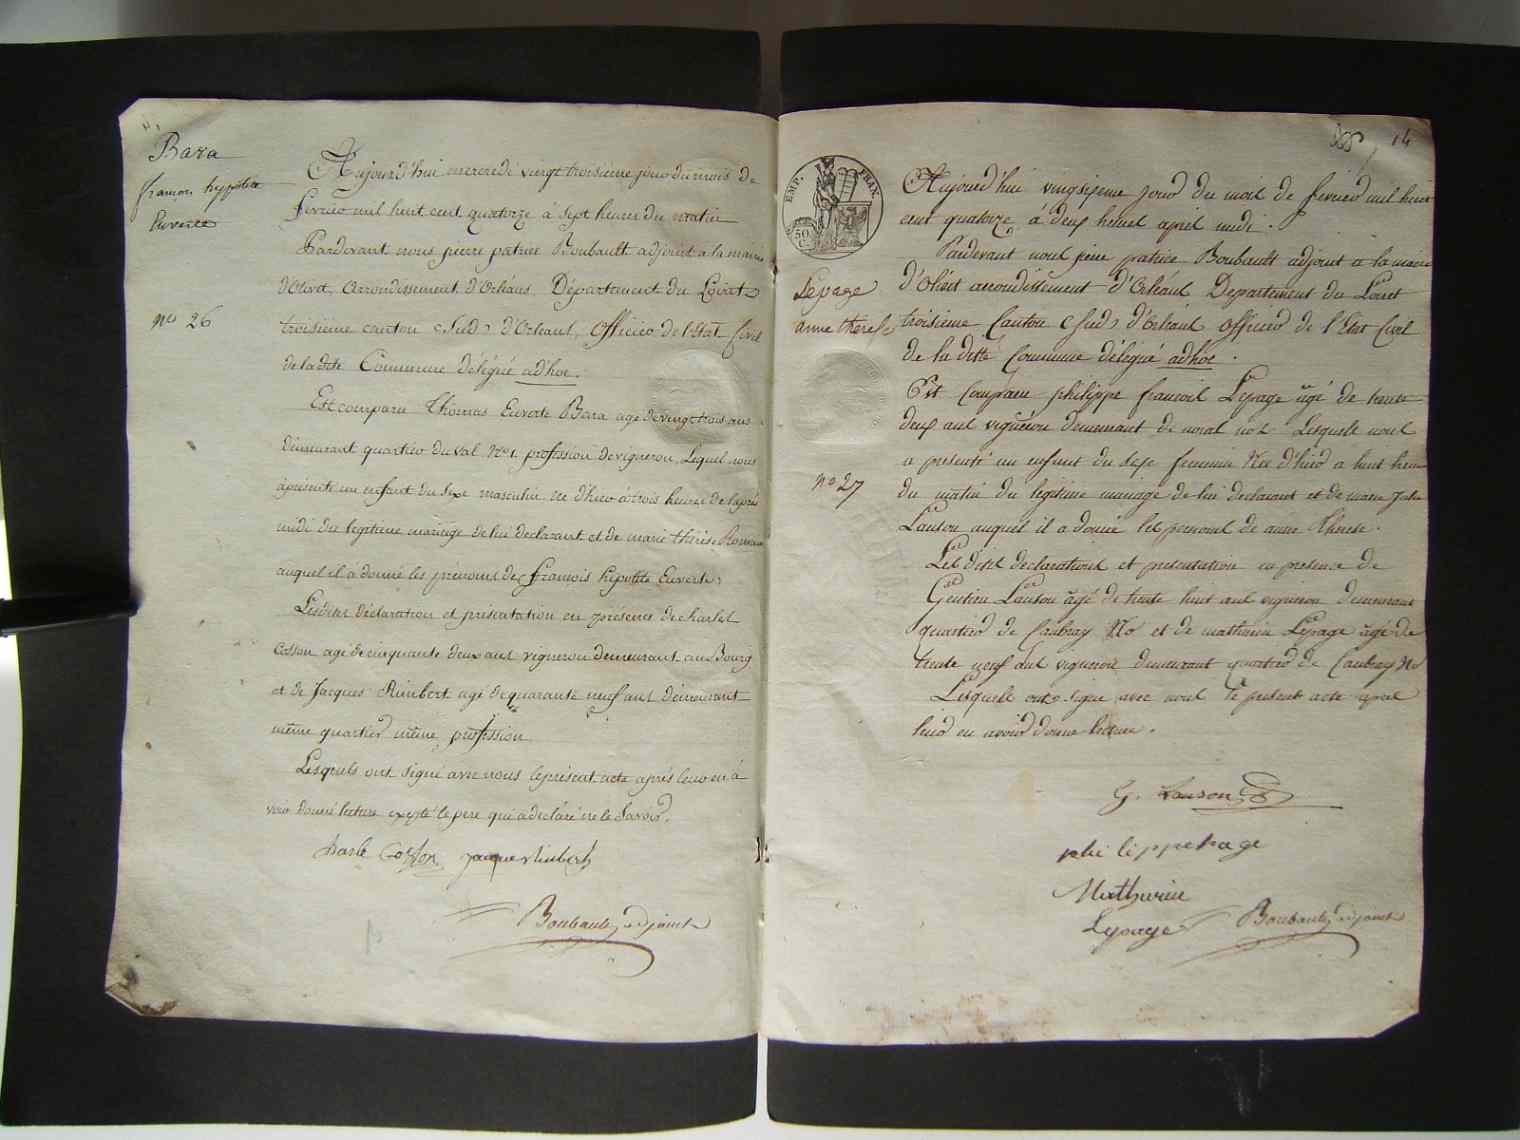 Bara
françois hyppolite
Euverte
n° 26
Aujourd'hui mercredi vingt troisieme jour du mois de
fevrier mil huit cent quatorze à sept heures du matin
Pardevant nous pierre patrice Boubault adjoint a la mairie
d'Olivet, Arrondissement d'Orléans, Département du Loiret
troisieme canton (Sud) d'Orleans, Officier de l'Etat Civil
de la dite Commune délégué ad'hoc.
Est comparu Thomas Euverte Bara agé de vingt trois ans
demeurant quartier du Val N° 1 profession de vigneron, Lequel nous
a présenté un enfant du sexe masculin né d'hier à trois heures de l'après
midi du legitime mariage de lui declarant et de marie thérèse
auquel il a donné les prénoms de françois hipolite Euverte;
Lesdites déclaration et présentation en présence de charles
Cosson agé de cinquante deux ans vigneron demeurant au Bourg
et de Jacques Rimbert agé de quarante neuf ans demeurant
même quartier même profession
Lesquels ont signé avec nous le présent acte après leur en a
voir donné lecture excepté le pere qui a déclaré ne le savoir.
Charle Cosson Jacque Rimbert
Boubault adjoint
14
EMP. FRAN.
50 C.
Lepage
anne therese
n° 27
Aujourd'hui vingsixieme jour du mois de fevrier mil huit
cent quatorze, à deux heures apres midi.
Pardevant nous piere patrice Boubault adjoint a la mairie
d'Olivet arrondissement d'Orléans Departement du Loiret
troisieme Canton (Sud) d'Orléans officier de l'Etat Civil
de la ditte Commune délégué ad'hoc.
Est Comparu philippe francois Lepage agé de trente
deux ans vigneron demeurant de noras no 2 Lesquels nous
a presenté un enfant du sexe feminin Née d'hier a huit heures
du matin du legitime mariage de lui declarant et de marie
Lanson auquel il a donné les prenoms de anne thérese.
Les dites declarations et presentation en presence de
Gentien Lanson agé de trente huit ans vigneron demeurant
quartier de Caubray No et de mathurin Lepage agé de
trente neuf ans vigneron demeurant quartier de Caubray No
Lesquels ont signé avec nous le present acte apres
leur en avoir donné lecture.
G. Lanson
philippe lepage
Mathurin
Lepage Boubault adjoint